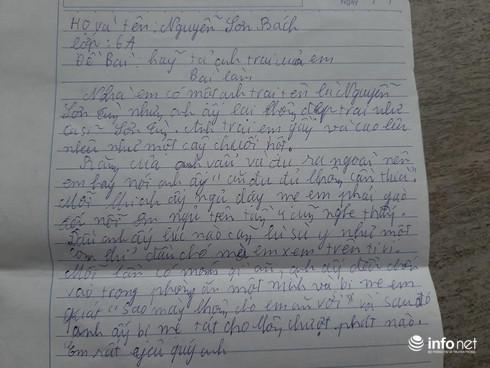 Ngày
Họ và tên: Nguyễn Sơn Bách
lớp: 6A
Đề Bài: hãy tả anh trai của em
Bài làm
Nhà em có một anh trai tên là Nguyễn
Sơn Tùng nhưng anh ấy lại không đẹp trai như
ca sĩ Sơn Tùng. Anh trai em gầy và cao lêu
nghêu như một cây chuối hột.
Răng của anh vẩu và đu ra ngoài nên
em hay nói anh ấy "ăn đu đủ không cần thìa".
Mỗi khi anh ấy ngủ dậy mẹ em phải gào
đến nỗi ông ngụ trên tầng 4 cũng nghe thấy.
Đầu anh ấy lúc nào cũng bù sù y như một
con thú đầu chó mẹ em xem trên ti vi.
Mỗi lần có món gì ăn, anh ấy đều
vào trong phòng ăn một mình và bị mẹ em
quát "sao mày không cho em ăn với" và sau đó
anh ấy bị mẹ tát cho không trượt phát nào.
Em rất quý anh
infonet